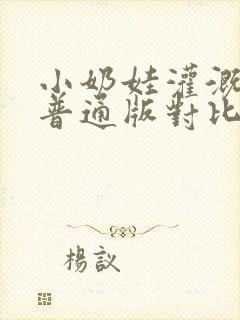 小奶娃灌溉
普通版對比
楊議